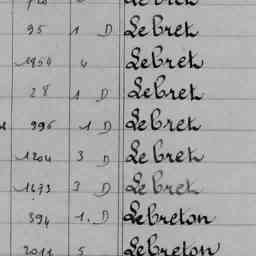 95 1 D Lebret
1954 4 Lebret
28 1 D Lebret
996 1 D Lebret
1204 3 D Lebret
1673 3 D Lebret
394 1. D Lebreton
2011 5 Lebreton